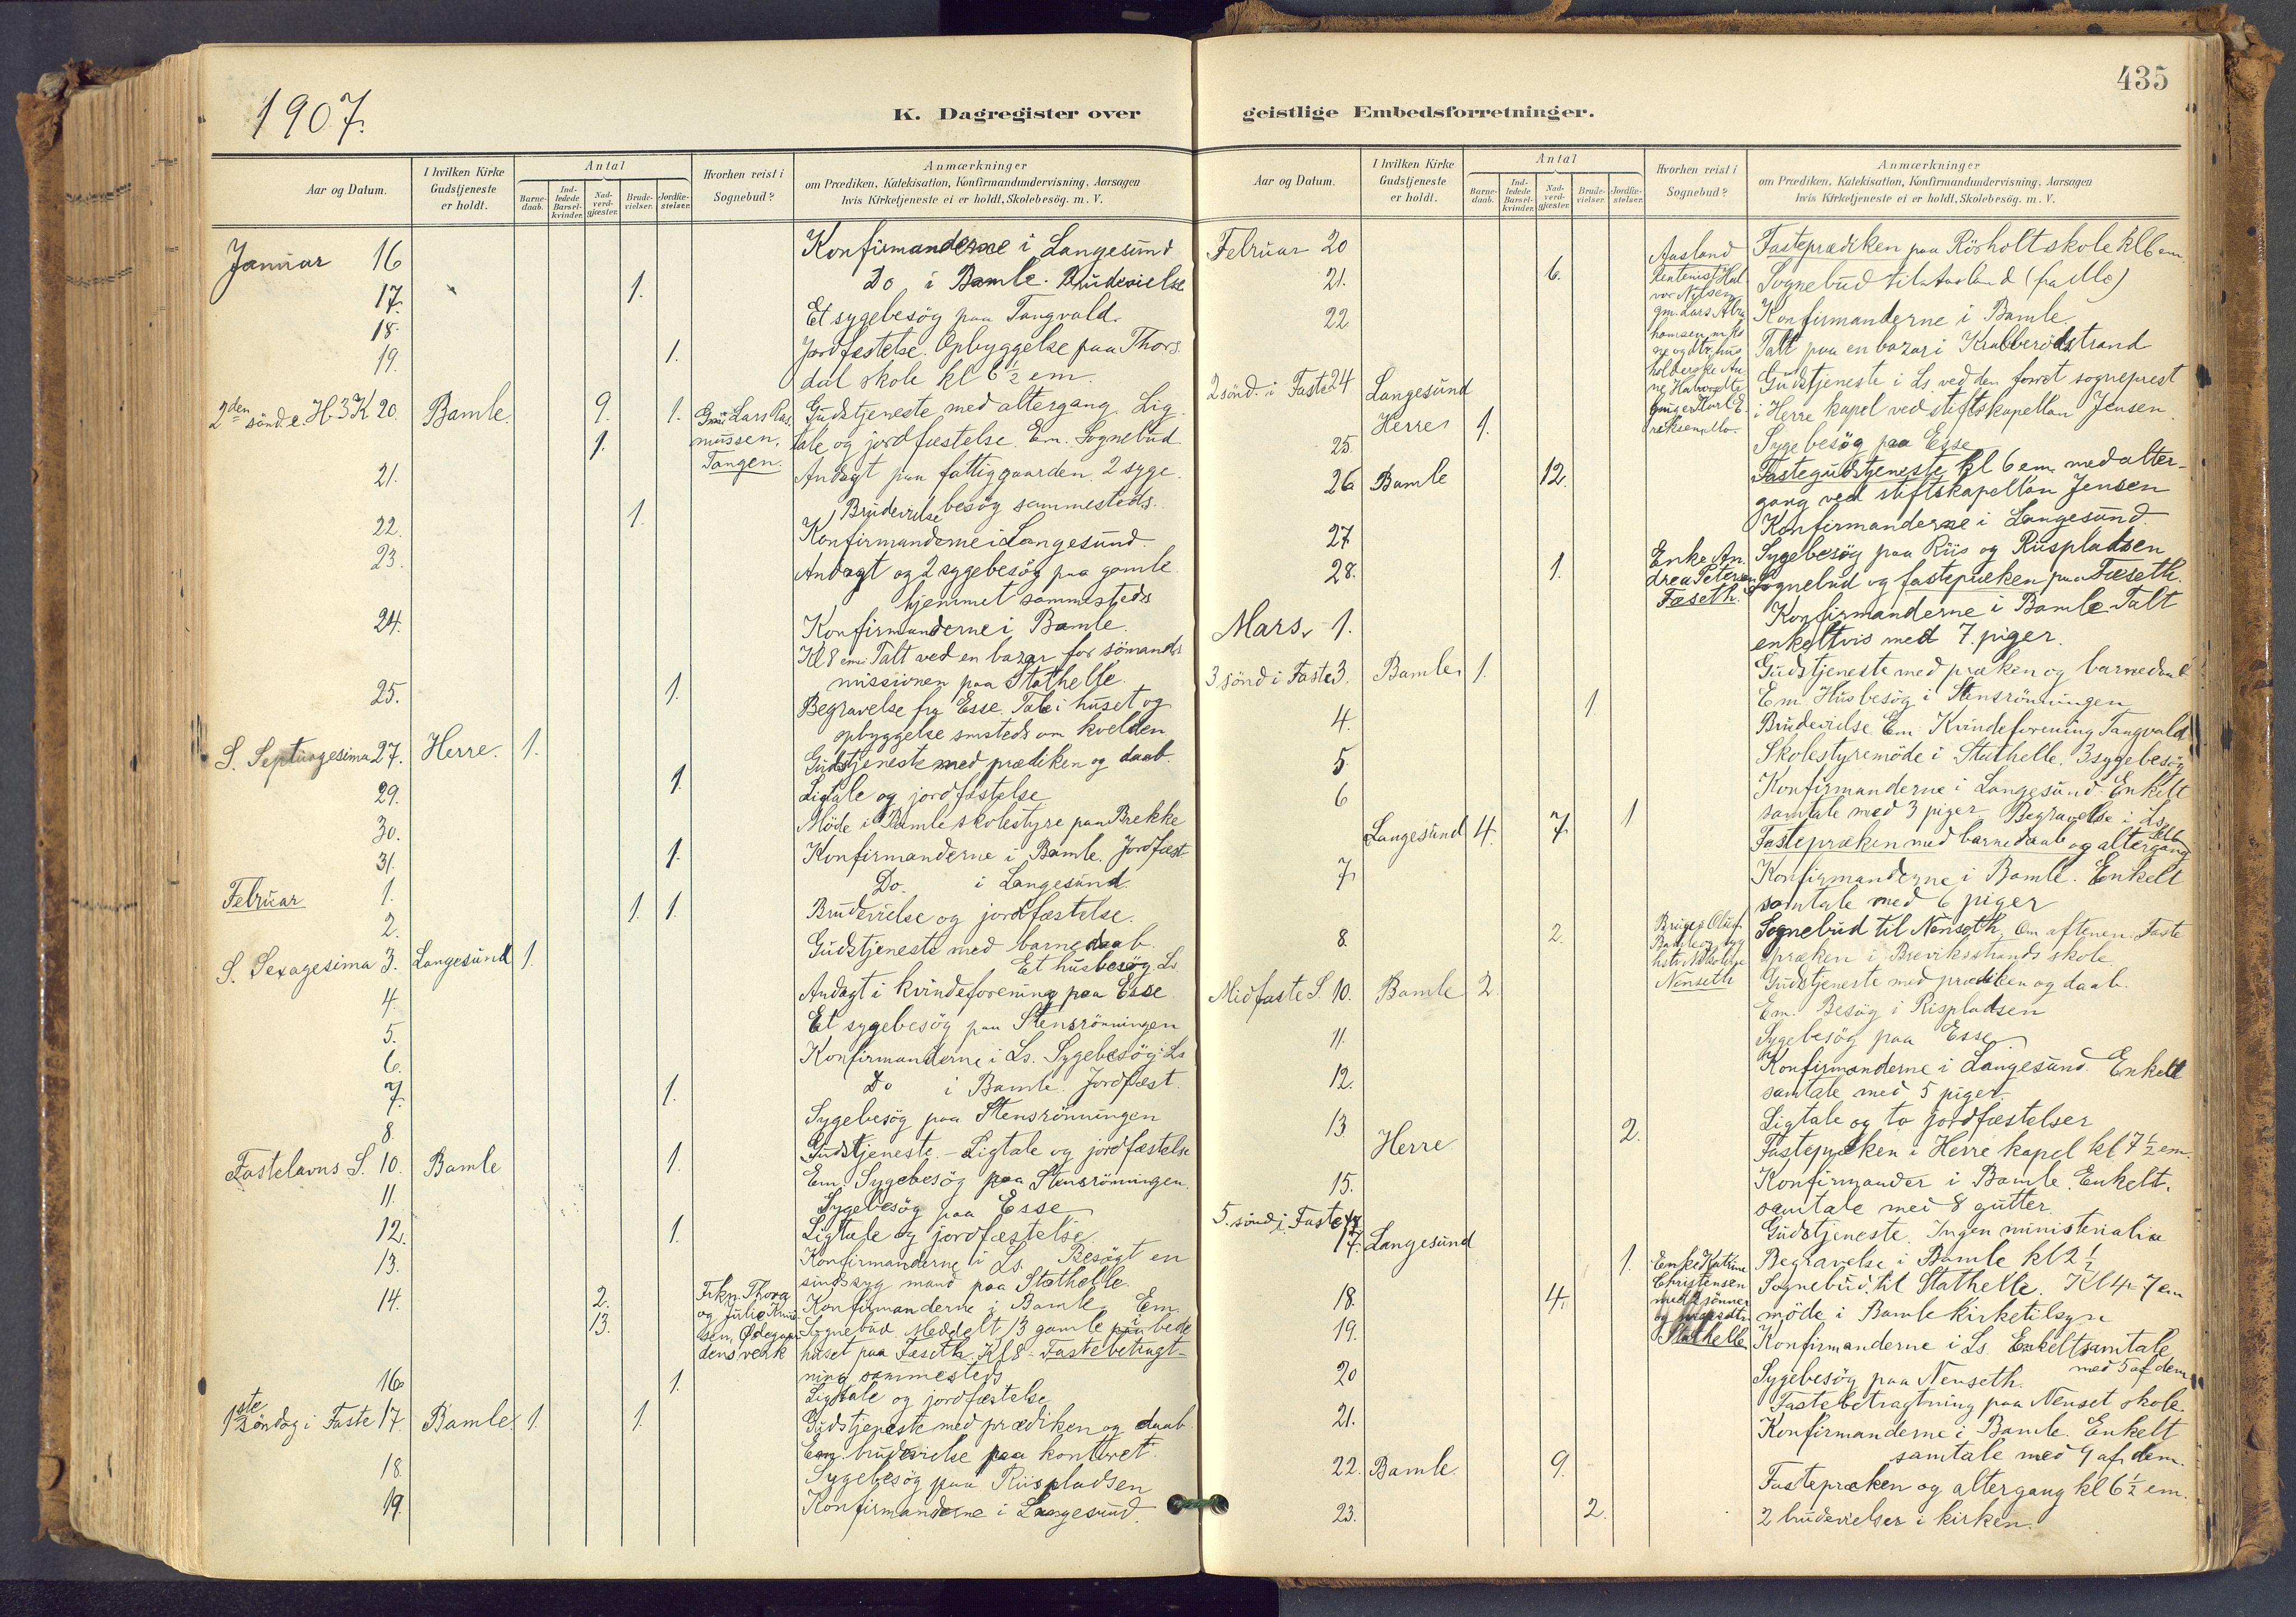 1907.
K. Dagregister over
Aar og Datum.
I hvilken Kirke
Gudstjeneste
er holdt.
Antal
Barne-
daab.
Ind-
ledede
Barsel-
kvinder.
Nad-
verd-
gjæster.
Brude-
vielser.
Jordfæ-
stelser.
Hvorhen reist i
Sognebud?
Anmærkninger
om Prædiken, Katekisation, Konfirmandundervisning, Aarsagen
hvis Kirketjeneste ei er holdt, Skolebesög. m. V.
Januar 16 Konfirmanderne i Langesund
17. 1. Do i Bamle. Brudevielse
18. Et sygebesög paa Tangvald.
19. 1. Jordfæstelse. Opbyggelse paa Thors
dal skole kl 6 1/2 em.
2den sönd. e. H. 3 K 20. Bamle. 9. 1. Lars Ras Gudstjeneste med altergang. Lig
1. mussen, tale og jordfæstelse. Em. Sognebud
Tangen.
21. Andagt paa fattiggaarden. 2 syge
besög sammesteds.
22. 1. Brudevielse
23. Konfirmanderne i Langesund.
Andagt og 2 sygebesög paa gamle
hjemmet sammesteds
24. Konfirmanderne i Bamle.
Kl 8 em: Talt ved en bazar for sömands
missionen paa Stathelle.
25. 1. Begravelse fra Esse. Tale i huset og
opbyggelse smsteds om kvelden
S. Septuagesima 27. Herre. 1. Gudstjeneste med prædiken og daab.
29. 1. Ligtale og jordfæstelse
30. Möde i Bamle skolestyre paa Brekke
31. 1. Konfirmanderne i Bamle. Jordfæst
Februar 1. Do. i Langesund.
2. 1. 1. Brudevielse og jordfæstelse.
S. Sexagesima 3. Langesund 1. Gudstjeneste med barnedaab.
Et husbesög Ls.
4. Andagt i kvindeforening paa Esse
5. Et sygebesög paa Stensrönningen
6. Konfirmanderne i Ls. Sygebesög i Ls
7. 1. Do i Bamle. Jordfæst.
8. Sygebesög paa Stensrönningen
Fastelavns S. 10. Bamle 1. Gudstjeneste. - Ligtale og jordfæstelse
Em. Sygebesög paa Stensrönningen.
11. Sygebesög paa Esse
12. 1. Ligtale og jordfæstelse
13. Konfirmanderne i Ls. Besögt en
sindssyg mand paa Stathelle.
14. 2. Frkn. Thora Konfirmanderne i Bamle. Em.
13. og Julie Knud Sognebud. Meddelt 13 gamle i bede
sen, Ødegaar huset paa Fæseth. Kl 8 - Fastebetragt-
dens verk ning sammesteds
16 1. Ligtale og jordfæstelse
1ste söndag i Faste 17. Bamle. 1. 1. Gudstjeneste med prædiken og daab
Em. brudevielse paa kontoret.
18. Sygebesög paa Riispladsen
19. Konfirmanderne i Langesund.
435
geistlige Embedsforretninger.
Aar og Datum.
I hvilken Kirke
Gudstjeneste
er holdt.
Antal
Barne-
daab.
Ind-
ledede
Barsel-
kvinder.
Nad-
verd-
gjæster.
Brude-
vielser.
Jordfæ-
stelser.
Hvorhen reist i
Sognebud?
Anmærkninger
om Prædiken, Katekisation, Konfirmandundervisning, Aarsagen
hvis Kirketjeneste ei er holdt, Skolebesög. m. V.
Februar 20 Aasland Fasteprædiken paa Rösholt skole kl 6 em.
21. 6. Sognebud til Aasland (fra Mo)
22 Lars Abra Konfirmanderne i Bamle
hamsen Talt paa en bazar i Krabberödstrand
2 sönd. i Faste 24 Langesund Gudstjeneste i Ls ved den forret sogneprest
Herre 1. i Herre kapel ved stiftskapellan Jensen
25. Sygebesög paa Esse
26 Bamle 12. Fastegudstjeneste kl 6 em. med alter-
gang ved stiftskapellan Jensen
27 Konfirmanderne i Langesund.
Enke An Sygebesög paa Riis og Riispladsen
28. 1. drea Petersen Sognebud og fastepræken paa Fæseth.
Fæseth.
Mars 1. Konfirmanderne i Bamle Talt
enkeltvis med 7 piger.
3 sönd i Faste 3. Bamle 1. Gudstjeneste med præken og barnedaab
Em. Husbesög i Stensrönningen
4. 1. Brudevielse. Em. Kvindeforening Tangvald
5 Skolestyremöde i Stathelle. 3 sygebesög
6 1 Konfirmanderne i Langesund. Enkelt
samtale med 3 piger. Begravelse i Ls
Langesund 4. 7. Fastepræken med barnedaab og altergang
7. Konfirmanderne i Bamle. Enkelt
samtale med 6 piger
8. 2. Sognebud til Nenseth. Om aftenen Faste
Nenseth præken i Breviksstrands skole
Midfaste S. 10. Bamle 2 Gudstjeneste med prædiken og daab.
Em. Besög i Rispladsen
11. Sygebesög paa Esse
12. Konfirmanderne i Langesund. Enkelt
samtale med 5 piger.
13 2. Ligtale og to jordfæstelser
Herre Fastepræken i Herre kapel kl 7 1/2 em.
15. Konfirmander i Bamle. Enkelt.
samtale med 8 gutter.
5. sönd i Faste 17. Langesund Gudstjeneste. Ingen ministerialia
1. Enke Katrine Begravelse i Bamle kl 2 1/2
18. 4. Christensen Sognebud til Stathelle. Kl 4-7 em
med 2 sönner möde i Bamle kirketilsyn
19. Stathelle Konfirmanderne i Ls. Enkeltsamtale
med 5 af dem
20 Sygebesög paa Nenseth.
Fastebetragtning paa Nenset skole
21. Konfirmanderne i Bamle. Enkelt
samtale med 9 af dem.
22. Bamle. 9. Fastepræken og altergang kl 6 1/2 em.
23. 2. 2 brudevielser i kirken.